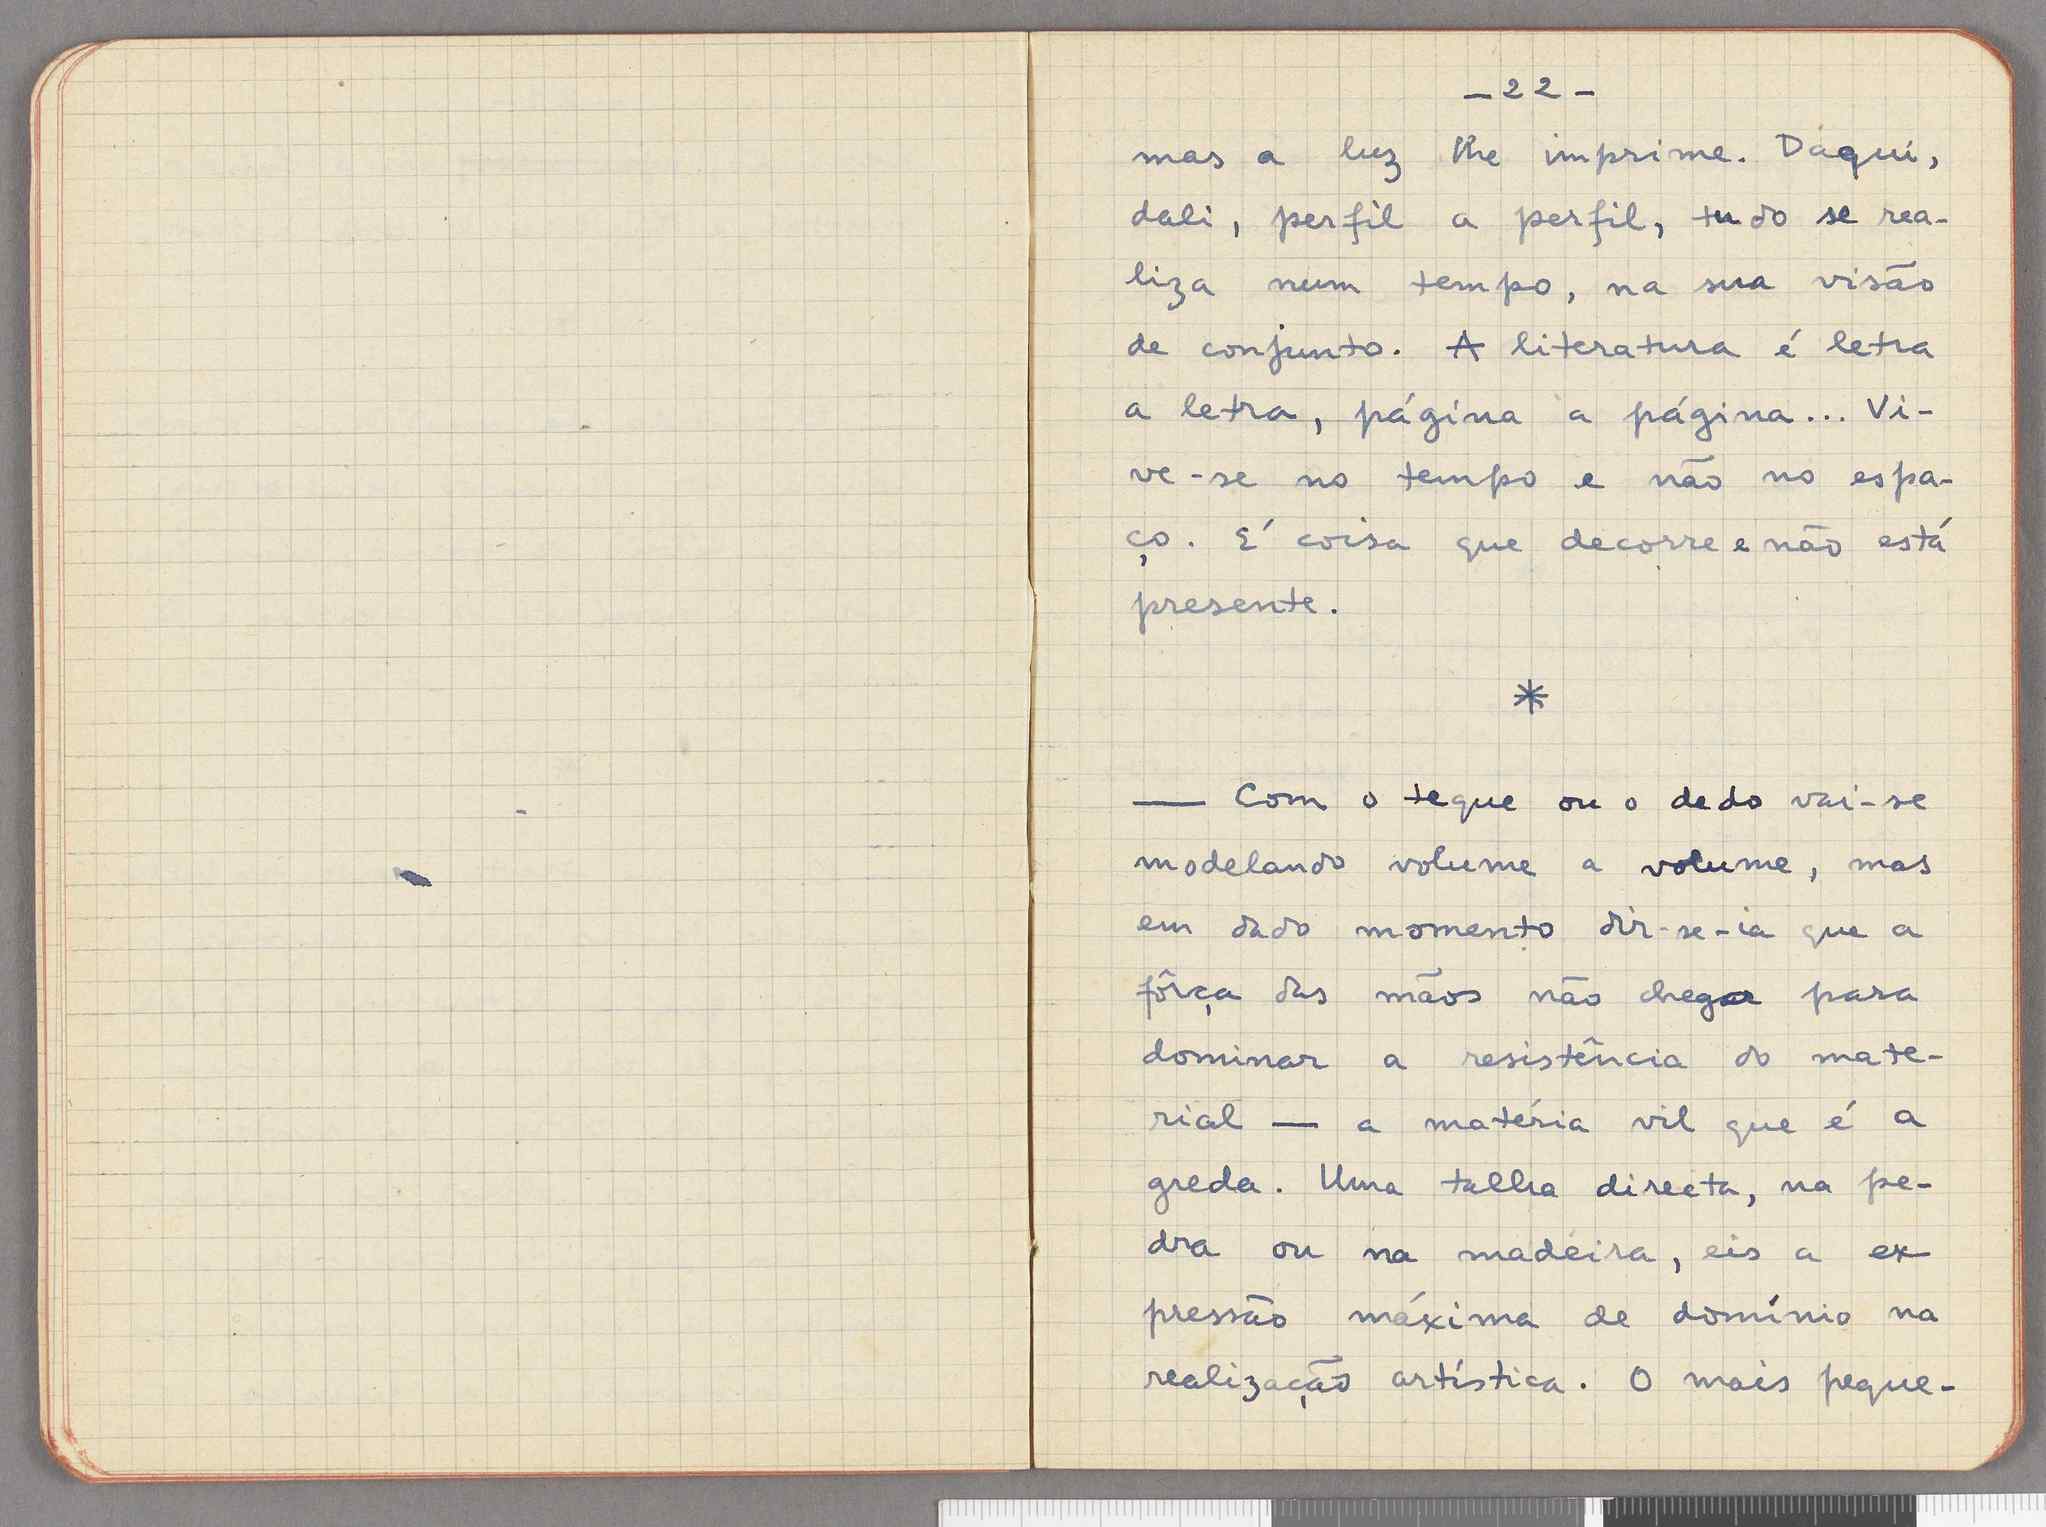 – 22 –
mas a luz lhe imprime. Daqui,
dali, perfil a perfil, tudo se rea-
liza num tempo, na sua visão
de conjunto. A literatura é letra
a letra, página a página... Vi-
ve-se no tempo e não no espa-
ço. É coisa que decorre e não está
presente.
*
— Com o teque ou o dedo vai-se
modelando volume a volume, mas
em dado momento dir-se-ia que a
fôrça das mãos não chegar para
dominar a resistência do mate-
rial — a matéria vil que é a
greda. Uma talha directa, na pe-
dra ou na madeira, eis a ex
pressão máxima de domínio na
realização artística. O mais peque-